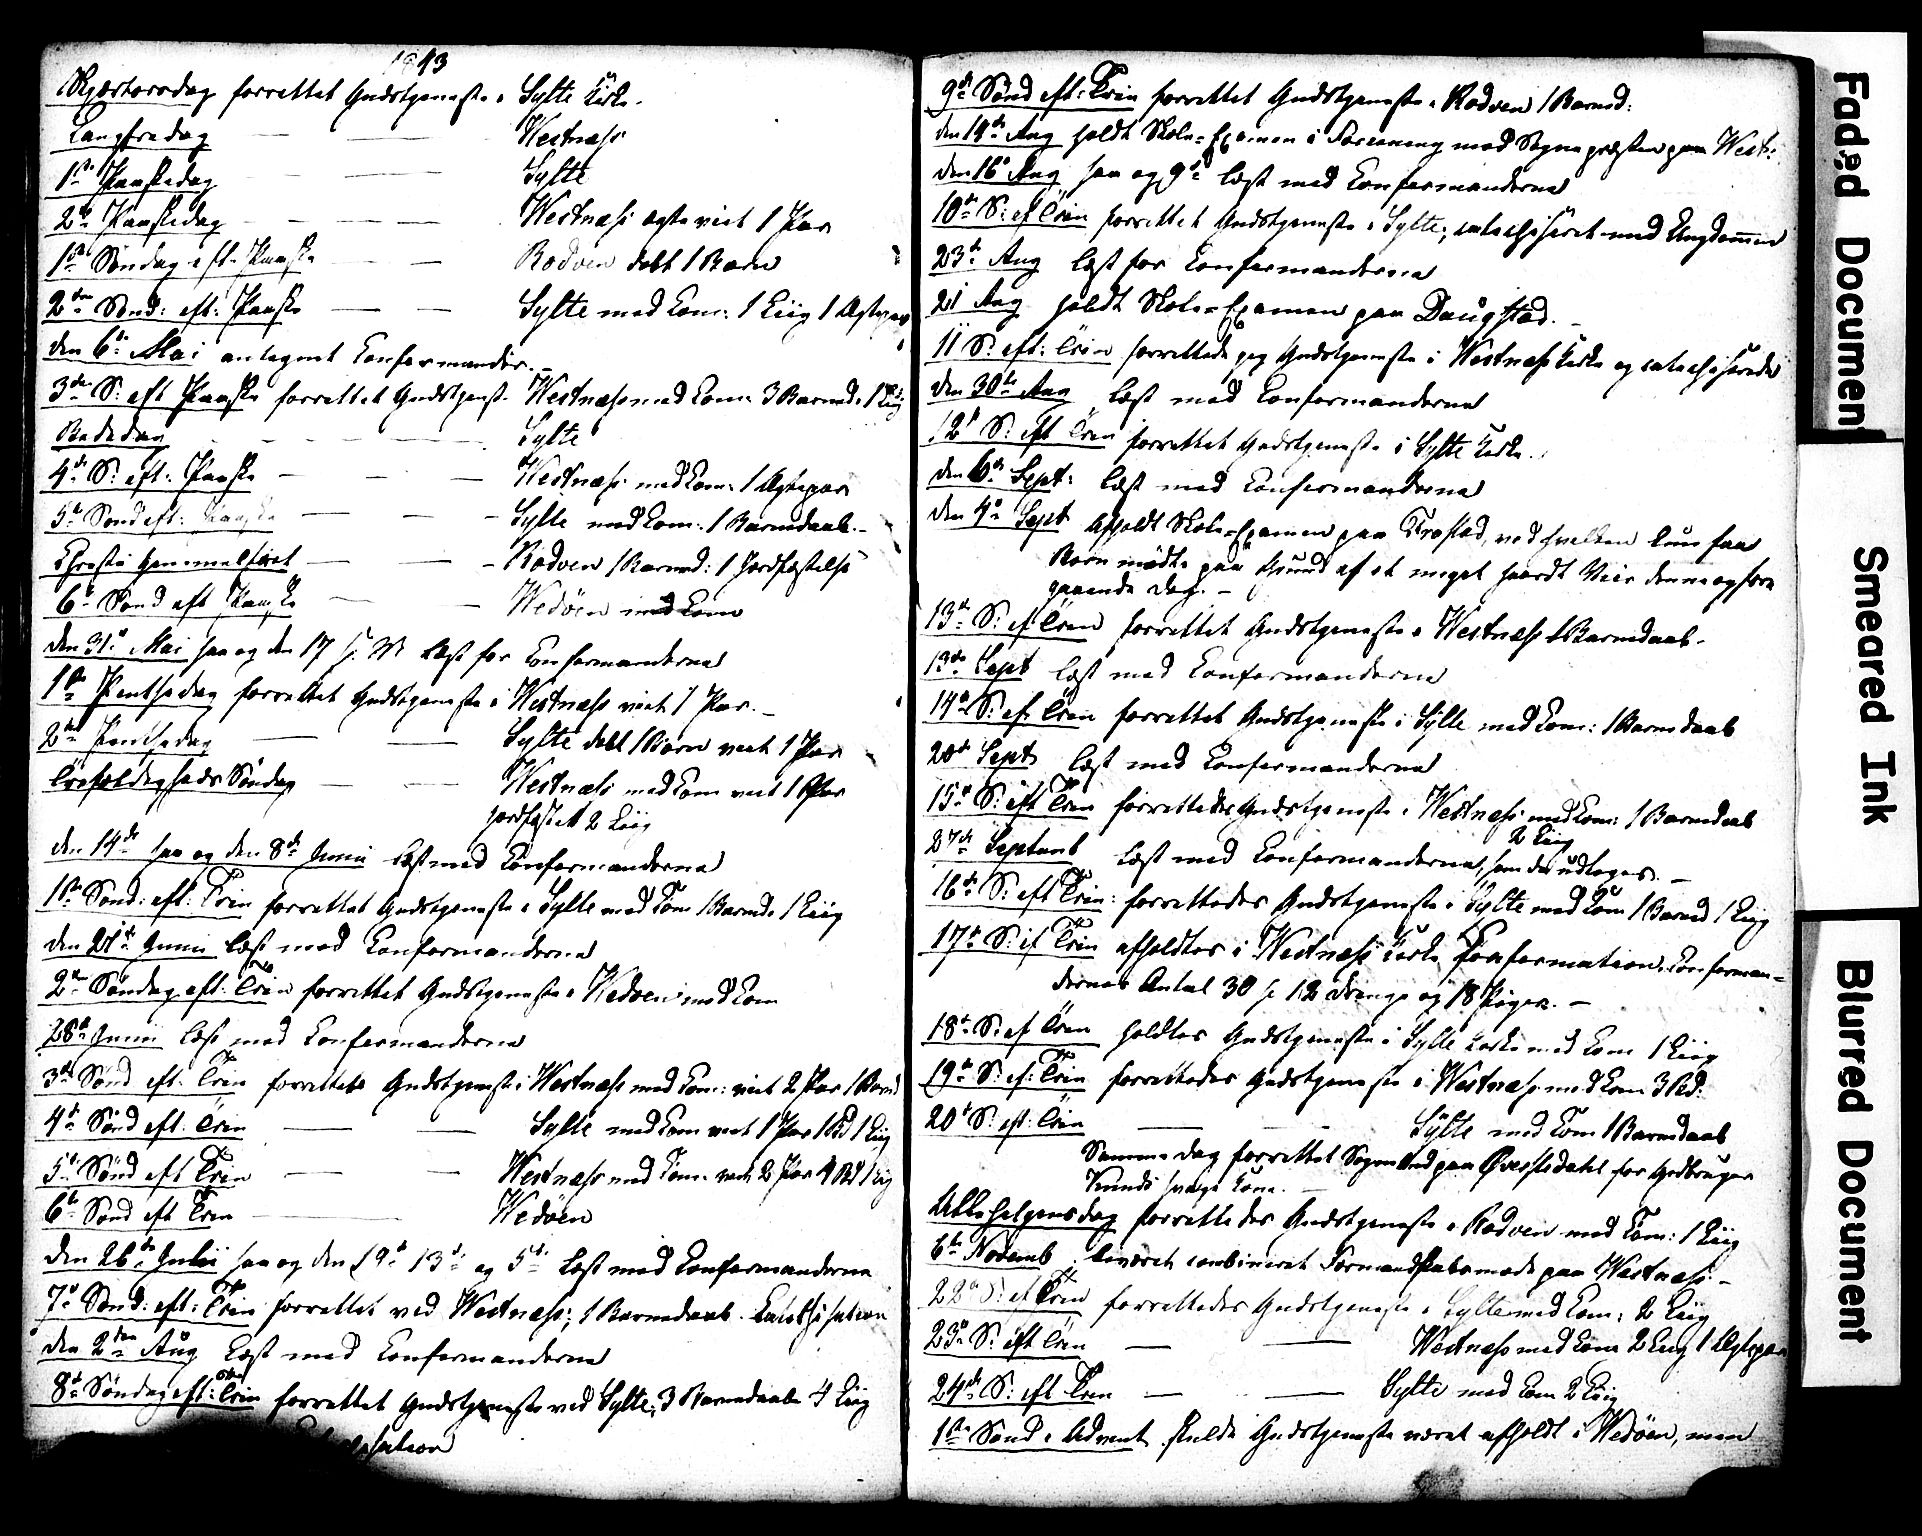 1843
Skjærtorsdag forrettet Gudstjeneste i Sylte Kirke.
Langfredag — — Westnæss
1ste Paaskedag — — Sylte
2den Paaskedag — — Westnæss ægteviet 1 Par
1ste Søndag eft. Paaske — — Rødven døbt 1 Barn
2den Sønd: eft: Paaske — — Sylte med Com: 1 Liig 1 Ægtepar
den 6te Mai antegnet Confermander.
3die S: eft Paaske forrettet Gudstjenst. Westnæss med Com: 3 Barned: 1 Liig
Bededag — — Sylte
4de S: eft: Paaske — — Westnæss med Com: 1 Ægtepar
5te Sønd eft: Paaske — — Sylte med Com: 1 Barnedaab.
Christi Himmelfart — — Rødven 1 Barned: 1 Jordfæstelse
6te Sønd eft Paaske — — Wedøen med Com
den 31te Mai saa og den 17 s. M. læst for Confermanderne
1ste Pentsedag forrettet Gudstjeneste i Westnæss viet 1 Par.
2den Pentsedag — — Sylte døbt 1 Barn viet 1 Par
Trefoldigheds Søndag — — Westnæss med Com viet 1 Par
jordfæstet 2 Liig
den 14de saa og den 8de Junii læst med Confermanderne
1ste Sønd: eft: Trin forrettet Gudstjeneste i Sylte med Com 1 Barned: 1 Liig
den 21de Junii læst med Confermanderne
2den Søndag eft: Trin forrettet Gudstjeneste i Wedøen med Com
28de Junii læst med Confermanderne
3die Sønd eft: Trin forrettet Gudstjenste i Westnæss med Com: viet 2 Par 1 Barnd
4de Sønd eft: Trin — — Sylte med Com viet 1 Par 1 Bd 1 Liig
5te Sønd eft Trin — — Westnæss med Com: viet 2 Par 4 Bd 1 Liig
6te Sønd eft Trin — — Wedøen
den 26de Julii saa og den 19de 13de og 5te læst med Confermanderne
7de Sønd: eft: Trin forrettet ved Westnæss; 1 Barnedaab. Catechisation
den 2den Aug læst med Confermanderne
8de Søndag eft: Trin forrettet Gudstjeneste ved Sylte; 3 Barnedaab 4 Liig
9de Sønd eft: Trin forrettet Gudstjeneste i Rødven 1 Barned:
den 14de Aug holdt Skole-Examen i Forening med Sognepræsten paa West:
den 16de Aug saa og 9de læst med Confermanderne
10de S: ef Trin forrettet Gudstjeneste i Sylte; catechiseret med Ungdommen
23de Aug læst for Confermanderne
21 Aug holdt Skole-Examen paa Daugstad.
11 S: eft: Trin forrettede jeg Gudstjeneste i Westnæss Kirke og catechiserede
den 30te Aug læst med Confermanderne
12te S: eft Trin forrettet Gudstjeneste i Sylte Kirke.
den 6te Sept: læst med Confermanderne
den 4de Sept afholdt Skole-Examen paa Frostad, ved hvilken kun faa
Børn mødte paa Grund af et meget haardt Veir denne og fore
gaaende Dag.
13de S: ef Trin forrettet Gudstjeneste i Westnæss 1 Barnedaab.
13de Sept læst med Confermanderne
14de S: ef: Trin forrettet Gudstjeneste i Sylte med Com: 1 Barnedaab
20de Sept læst med Confermanderne
15de S: eft Trin forrettedes Gudstjeneste i Westnæss med Com: 1 Barnedaab
2 Liig
27de Septemb læst med Confermanderne, som da udtoges.
16de S: eft Trin: forrettedes Gudstjeneste i Sylte med Com 1 Barned 1 Liig
17de S: ef Trin afholdtes i Westnæss Kirke Confermation. Conferman-
dernes Antal 30 s: 12 Drenge og 18 Piger.
18de S: ef Trin holdtes Gudstjeneste i Sylte Kirke med Com 1 Liig
19de S: ef: Trin forrettedes Gudstjeneste i Westnæss med Com 3 Bd:
20de S: eft: Trin — — Sylte med Com 1 Barnedaab
Samme Dag forrettet Sognebud paa Øverstedahl for Gdbruger
Knuds svage Kone.
Allehelgensdag forrettedes Gudstjeneste i Rødven med Com: 1 Liig
6te Novemb. combineret Formandskabsmøde paa Westnæss.
22de S: ef Trin forrettedes Gudstjeneste i Sylte med Com: 2 Liig
23de S: eft Trin — — Westnæss med Com 2 Liig 1 Ægtepar
24de S: eft Trin — — Sylte med Com 2 Liig
1ste Sønd i Advent skulde Gudstjeneste været afholdt i Wedøen, men